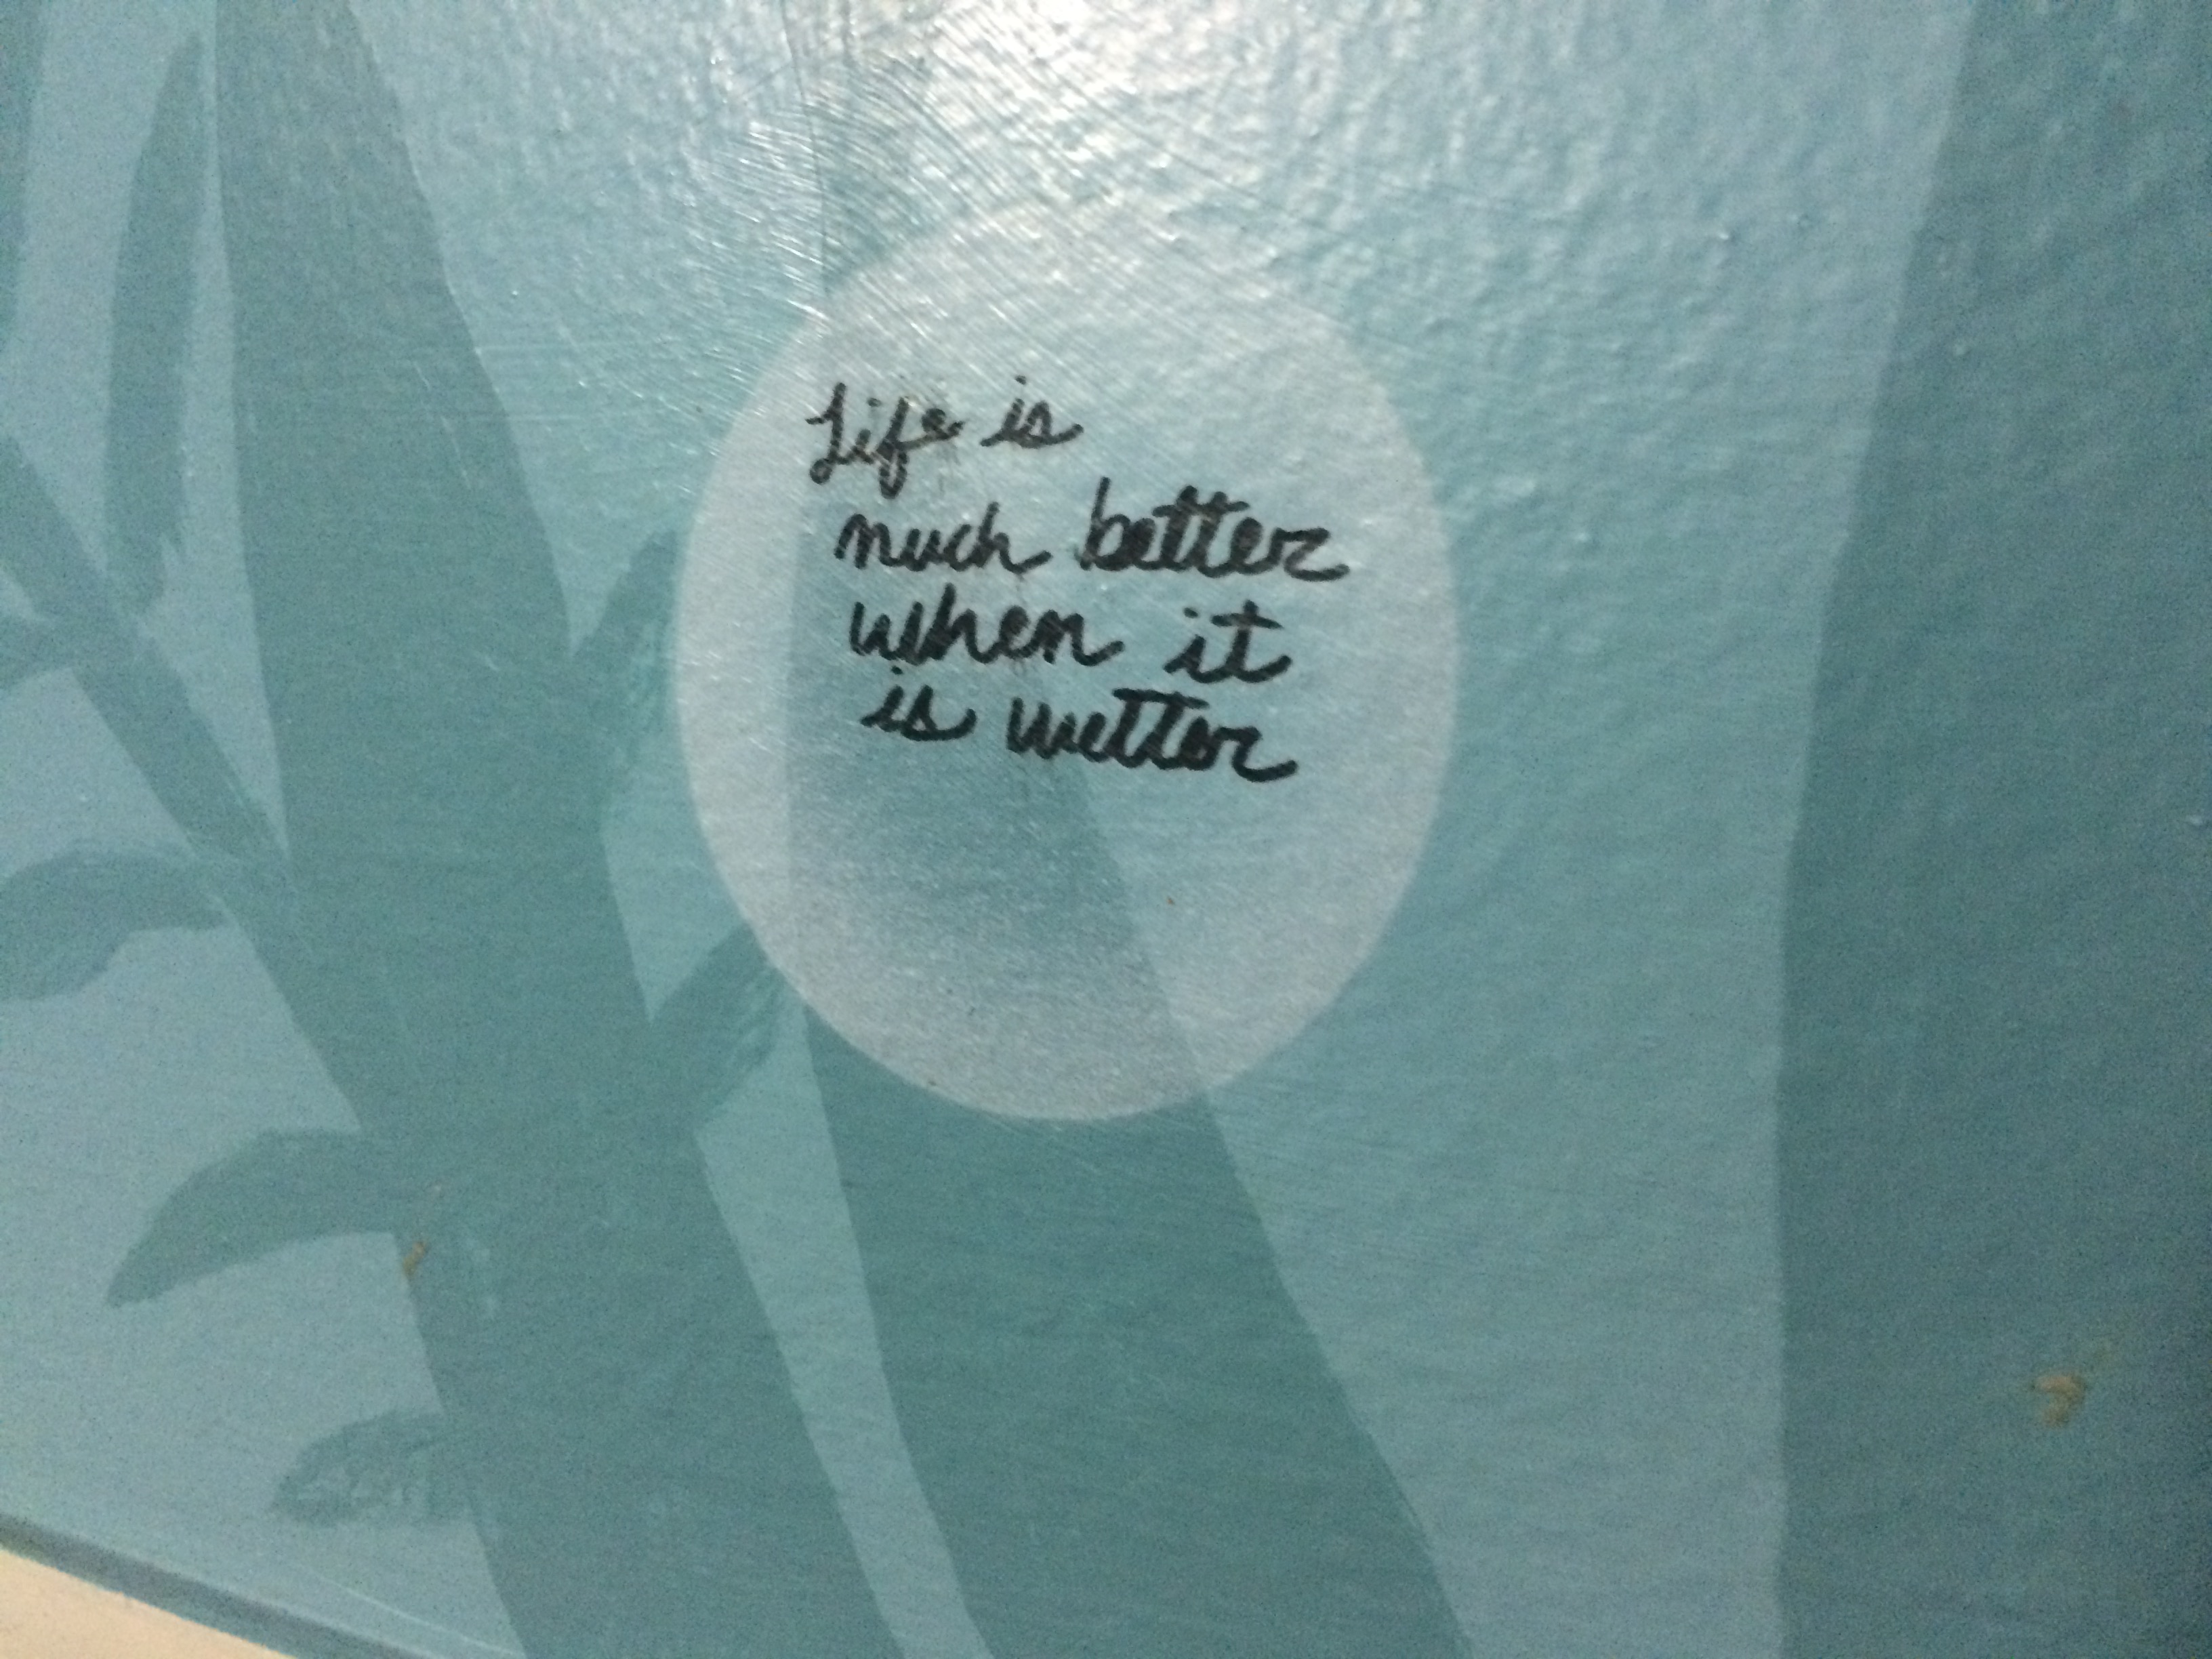 Life is
much better
when it
is wetter